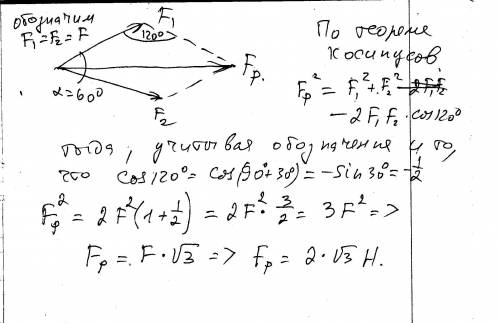 обозначим
F₁=F₂=F
F₁
120°
Fр.
α=60°
F₂
По теореме
косинусов
Fр² = F₁²+F₂²
-2F₁F₂·cos120°
тогда, учитывая обозначение и то,
что cos120°= cos(90°+30°)=-sin30°=-1/2
Fр² = 2F²(1+1/2) = 2F²·3/2 = 3F² =>
Fр = F·√3 => Fр = 2·√3 Н.